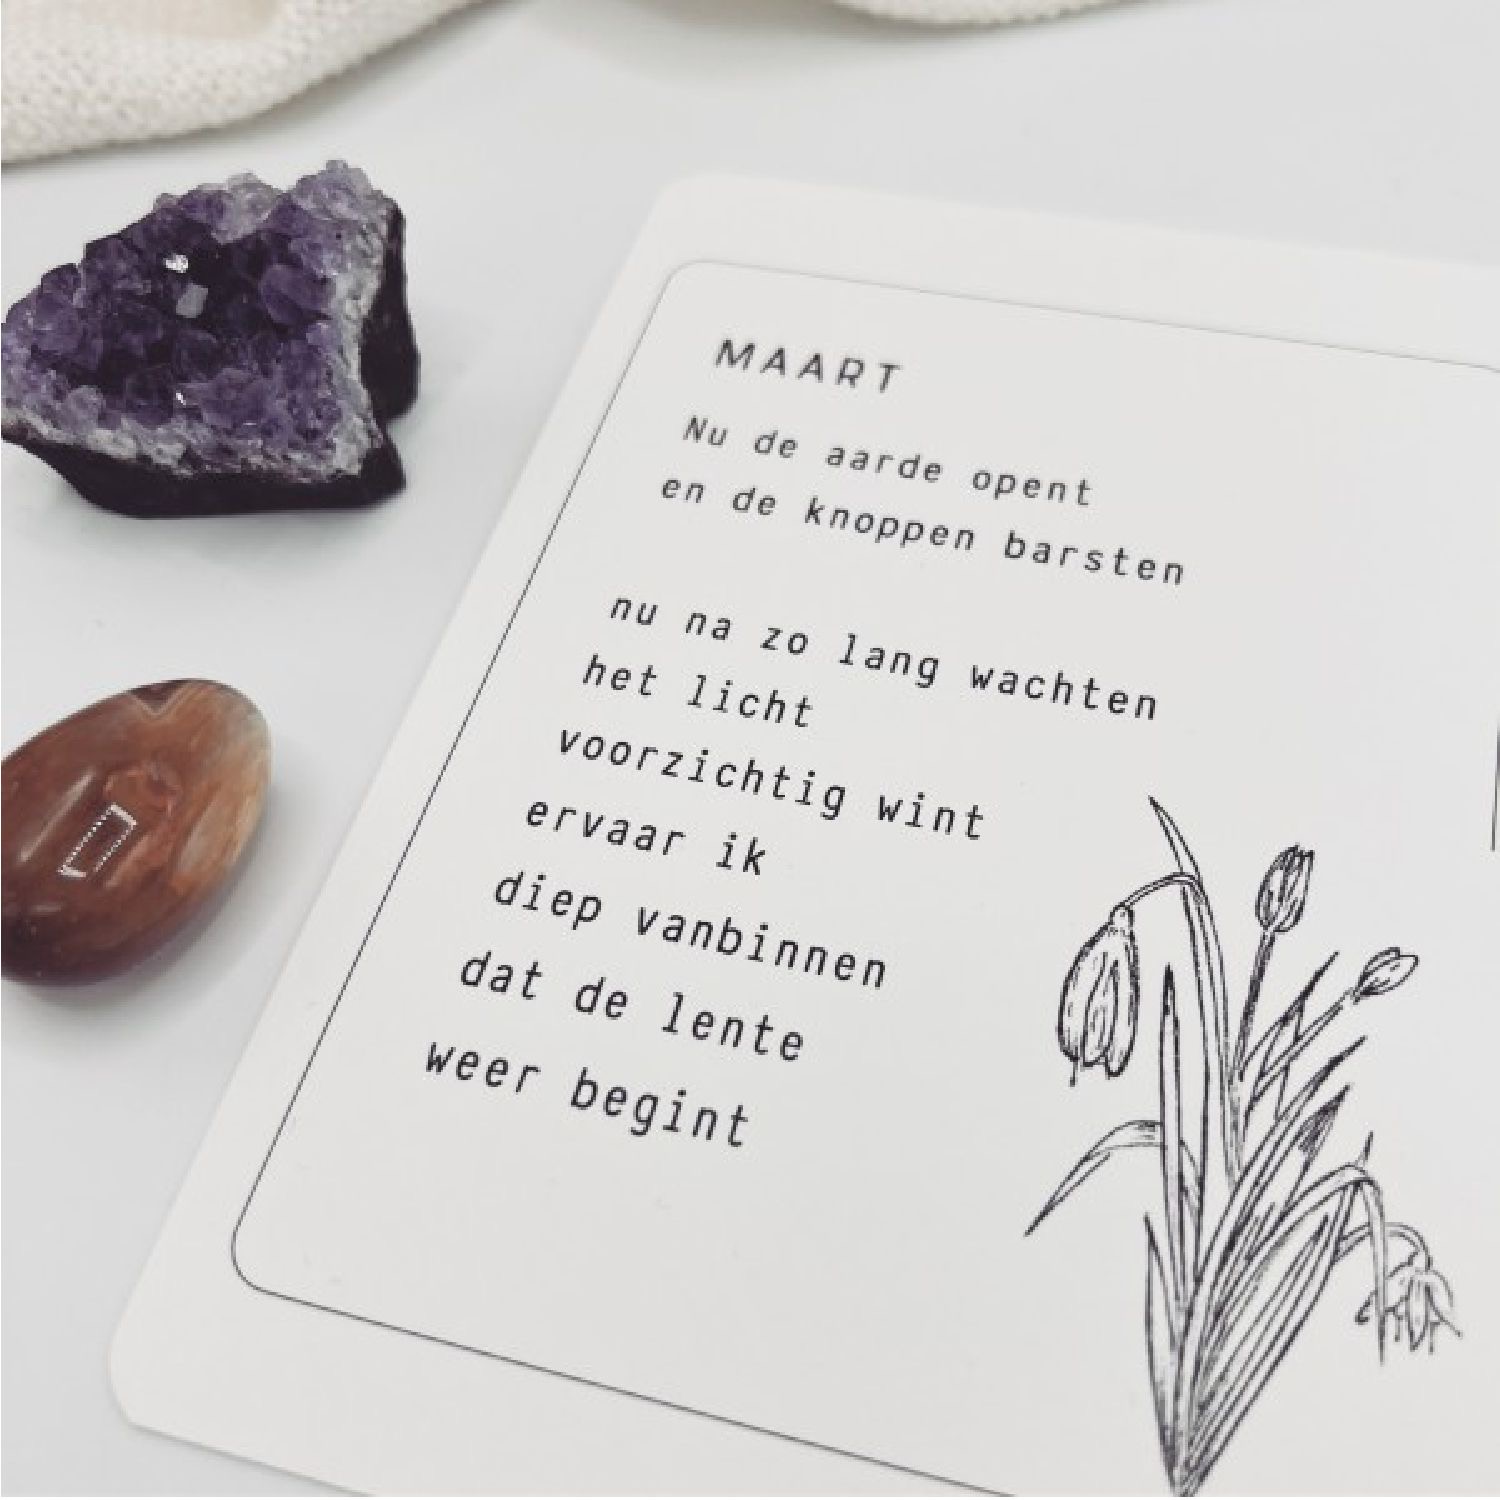 MAART
Nu de aarde opent
en de knoppen barsten
nu na zo lang wachten
het licht
voorzichtig wint
ervaar ik
diep vanbinnen
dat de lente
weer begint